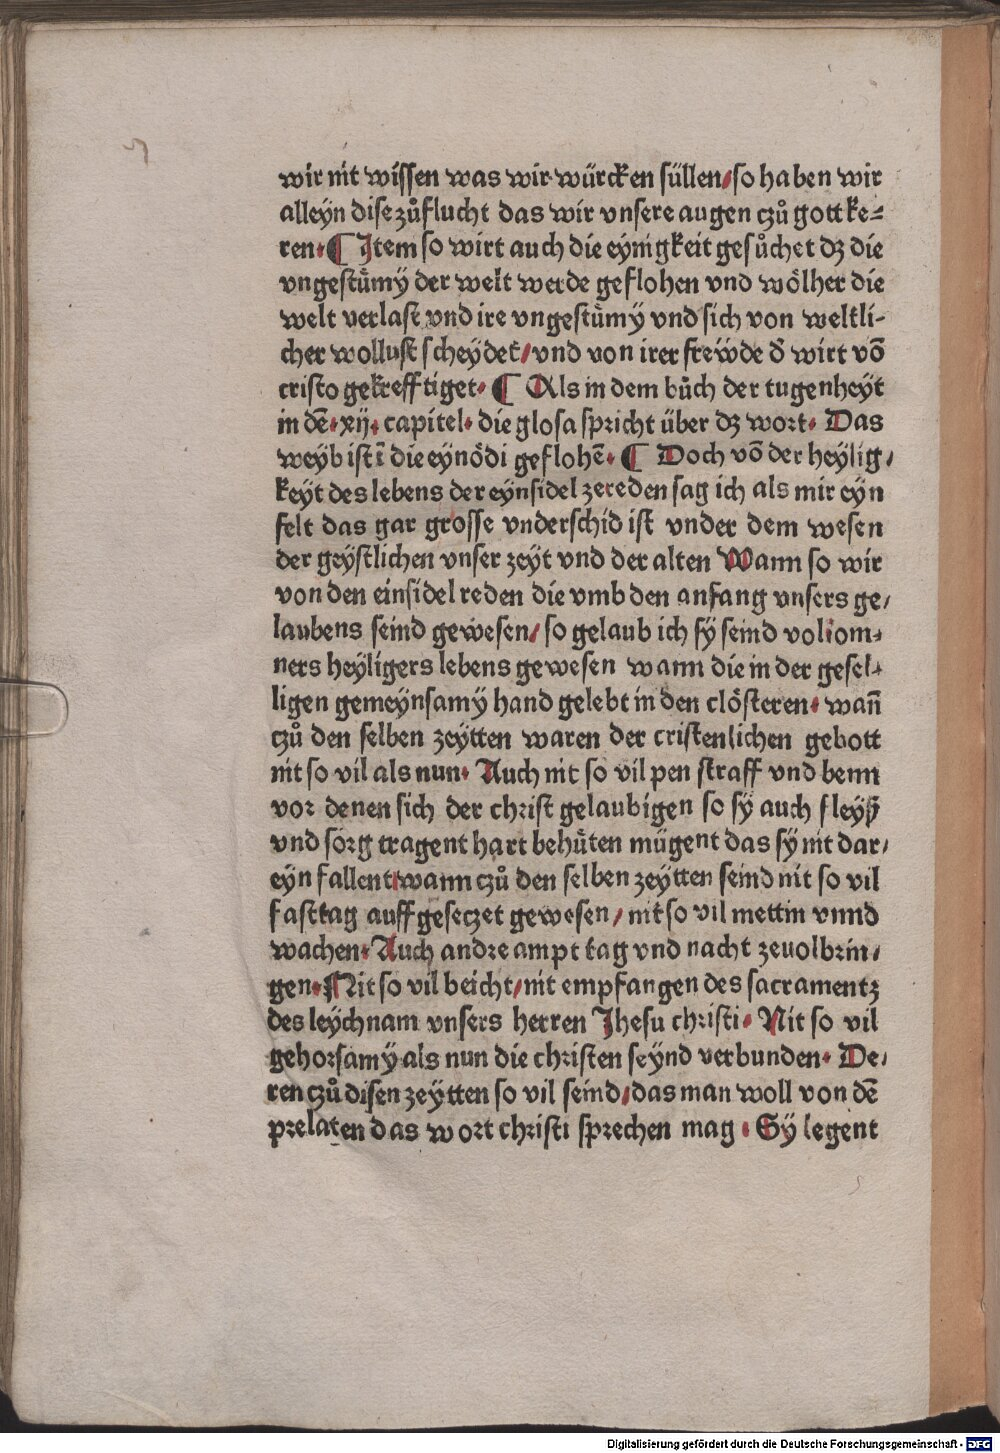 wir nit wissen was wir würcken süllen/so haben wir
alleyn dise zůflucht das wir vnsere augen czů gott ke⸗
ren.¶ Item so wirt auch die eynigkeit gesůchet dz die
vngestům̈y der welt werde geflohen vnd woͤlher die
welt verlast vnd ire vngestuͤmy vnd sich von weltli-
cher wollust scheydet/vnd von irer frewde d̕ wirt võ
cristo gekrefftiget. ¶ Als in dem bůch der tugenheyt
in dẽ.xij.capitel.die glosa spricht über dz wort. Das
weyb ist ĩ die eynoͤdi geflohẽ. ¶ Doch võ der heylig/
keyt des lebens der eynsidel zereden sag ich als mir eyn
felt das gar grosse vnderschid ist vnder dem wesen
der geystlichen vnser zeyt vnd der alten Wann so wir
von den einsidel reden die vmb den anfang vnsers ge/
laubens seind gewesen/so gelaub ich sy seind volkom⸗
ners heyligers lebens gewesen wann die in der gesel⸗
ligen gemeynsamy hand gelebt in den cloͤsteren.wañ
czů den selben zeytten waren der cristenlichen gebott
nit so vil als nun. Auch nit so vil pen straff vnd benn
vor denen sich der christ gelaubigen so sy auch fleyß
vnd sorg tragent hart behuͤten mügent das sy nit dar/
eyn fallent/wann czů den selben zeytten seind nit so vil
fasttag auffgeseczet gewesen/nit so vil mettin vnnd
wachen.Auch andre ampt tag vnd nacht zeuolbrin/
gen.Nit so vil beicht/nit empfangen des sacramentz
des leychnam vnsers herren Jhesu christi.Nit so vil
gehorsamy als nun die christen seynd verbunden. De/
ren czů disen zeytten so vil seind/das man woll von dẽ
prelaten das wort christi sprechen mag.Sy legent
Digitalisierung gefördert durch die Deutsche Forschungsgemeinschaft - DFG